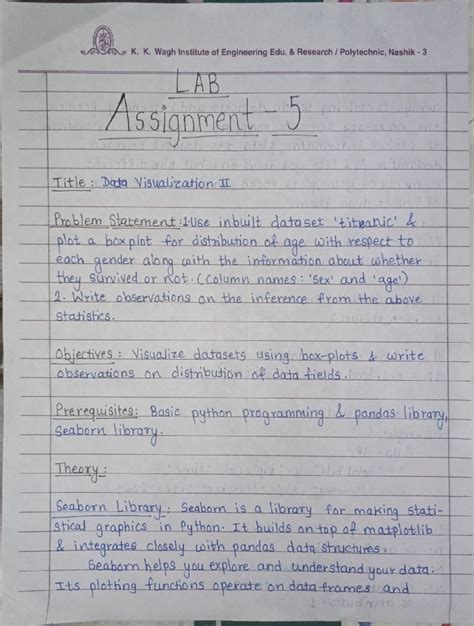 K. K. Wagh Institute of Engineering Edu. & Research / Polytechnic, Nashik - 3
LAB
Assignment - 5
Title : Data Visualization II
Problem Statement : 1. Use inbuilt dataset 'titanic' &
plot a boxplot for distribution of age with respect to
each gender along with the information about whether
they survived or not. (Column names : 'sex' and 'age')
2. Write observations on the inference from the above
statistics.
Objectives : Visualize datasets using box-plots & write
observations on distribution of data fields.
Prerequisites: Basic python programming & pandas library,
Seaborn library.
Theory :
Seaborn Library : Seaborn is a library for making stati-
stical graphics in Python. It builds on top of matplotlib
& integrates closely with pandas data structures.
Seaborn helps you explore and understand your data.
Its plotting functions operate on dataframes and